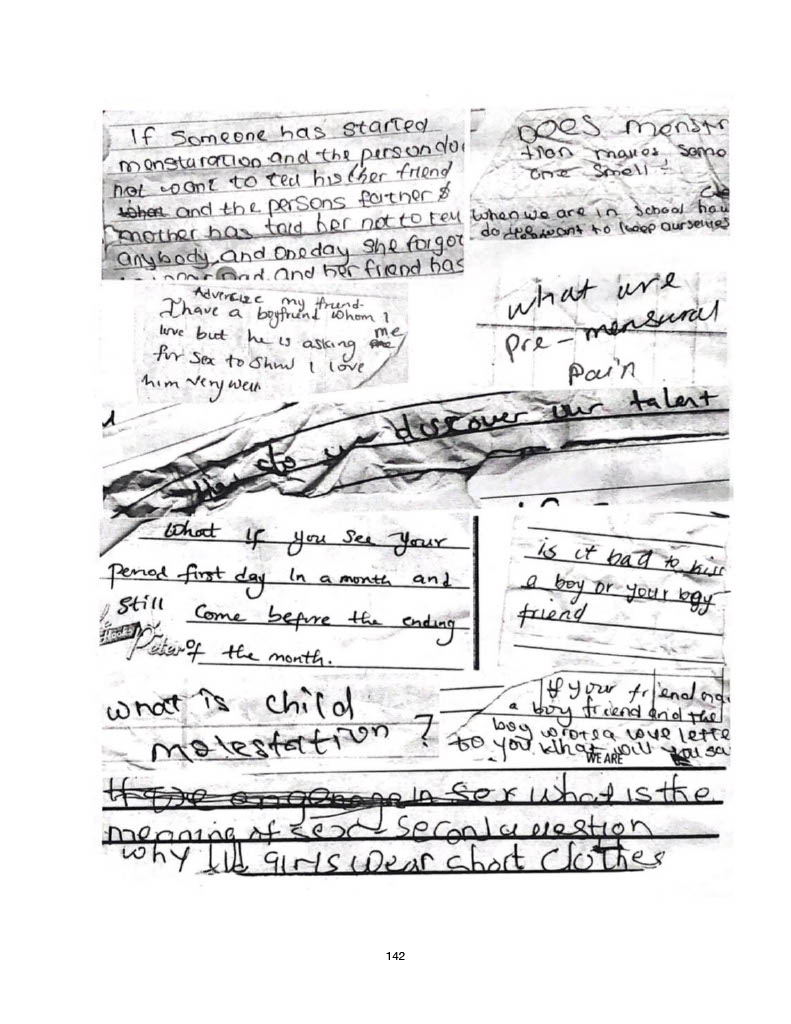 If Someone has started
monstaration and the person do
not want to tell his her friend
and the persons father &
mother has told her not to tell
anybody and one day she forgot
and her friend has
DOES monstr
tion makes some
one smell
when we are in school how
do we want to keep ourselves
Advercize my friend
I have a boyfriend whom I
love but he is asking me
for sex to show I love
him very well
what are
pre-mensural
pain
How do we discover our talent
What if you see your
period first day in a month and
still come before the ending
of the month.
Peter
is it bad to kiss
a boy or your boy
friend
what is child
molestation ?
If your friend
a boy friend and the
boy wrote a love lette
to you what will you sa
WE ARE
in sex what is the
meaning of sex - Second question
why girls wear short clothes
142